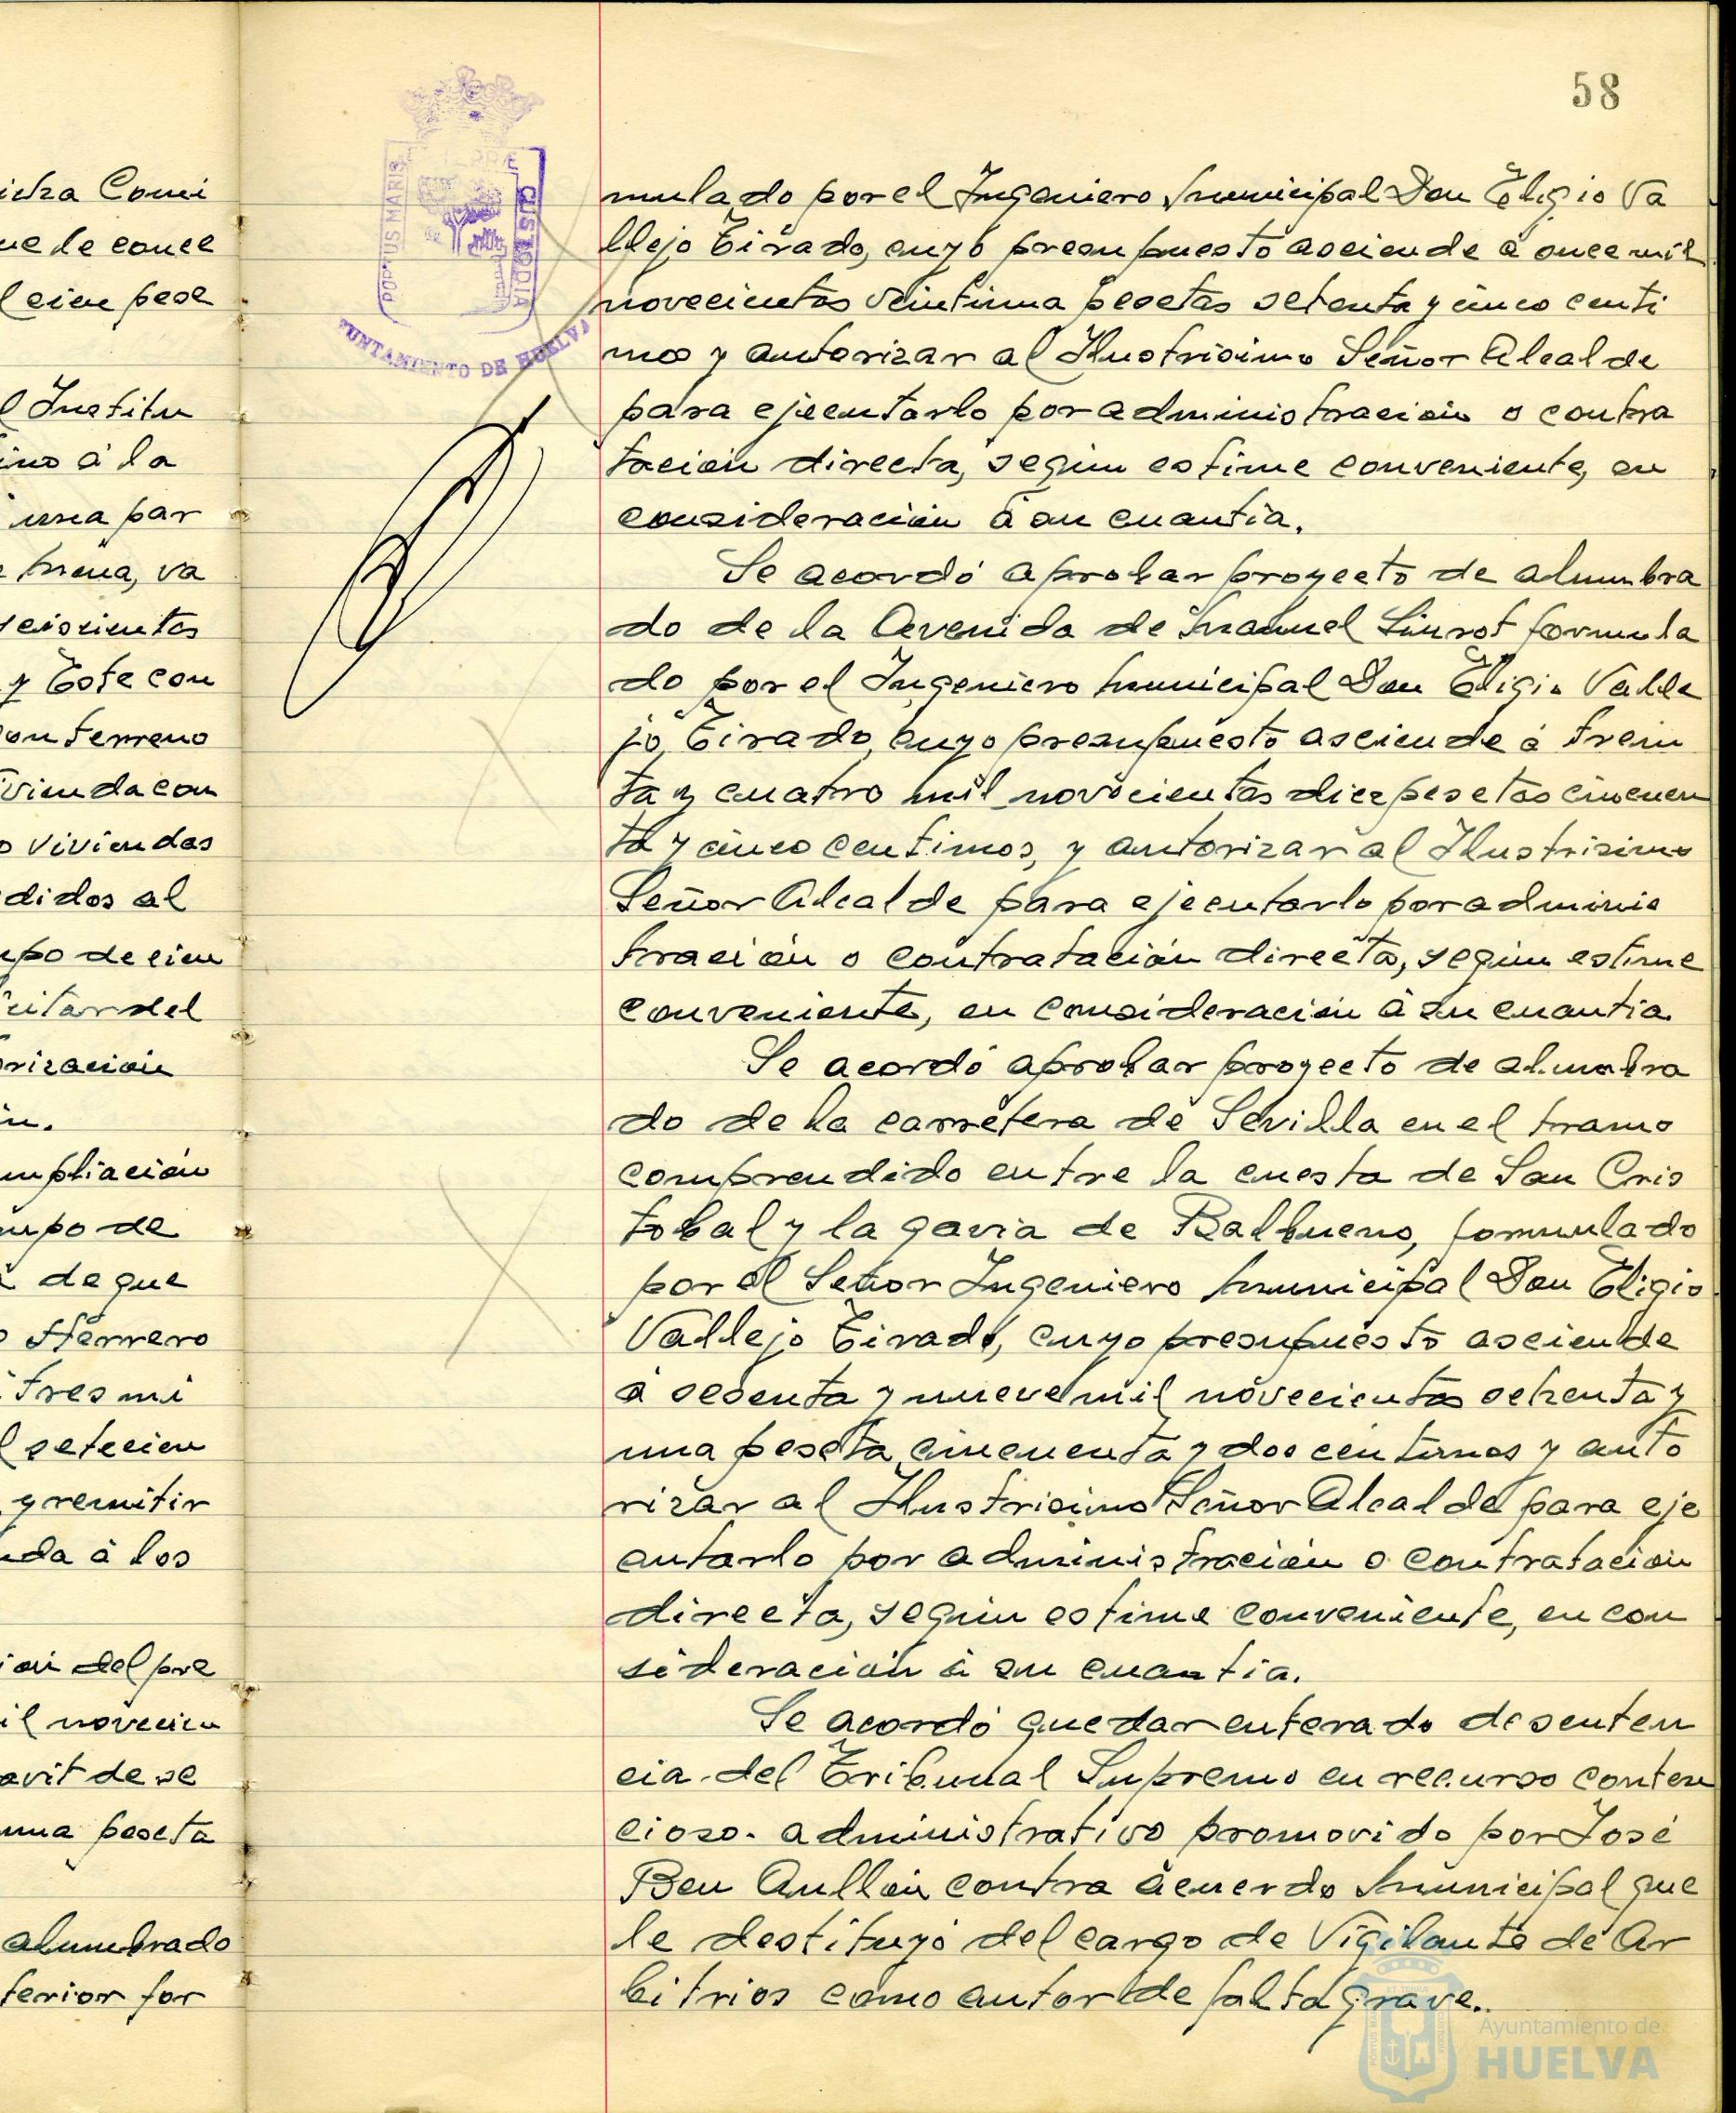 58
icha Comi
ue le conce
l cien pese
l Institu
ino á la
una par
buena, va
seiscientas
y Este con
con terreno
vivienda con
o viviendas
didos al
upo de cien
citar del
orización
ón.
mpliación
upo de
á de que
o Herrero
tres mi
l setecien
y remitir
da á los
ión del pre
il novecien
avit de se
una peseta
alumbrado
terior for
PORTUS MARIS
ET TERRÆ
CUSTODIA
AYUNTAMIENTO DE HUELVA
mulado por el Ingeniero Municipal Don Eligio Va
llejo Tirado, cuyo presupuesto asciende á once mil
novecientas veintiuna pesetas setenta y cinco centi
mos y autorizar al Ilustrisimo Señor Alcalde
para ejecutarlo por administración o contra
tación directa, según estime conveniente, en
consideración á su cuantia.
Se acordó aprobar proyecto de alumbra
do de la Avenida de Manuel Siurot formula
do por el Ingeniero Municipal Don Eligio Valle
jo Tirado, cuyo presupuesto asciende á trein
ta y cuatro mil novecientas diez pesetas cincuen
ta y cinco centimos, y autorizar al Ilustrisimo
Señor Alcalde para ejecutarlo por adminis
tración o contratación directa, según estime
conveniente, en consideración á su cuantia
Se acordó aprobar proyecto de alumbra
do de la carretera de Sevilla en el tramo
comprendido entre la cuesta de San Cris
tobal y la gavia de Balbueno, formulado
por el Señor Ingeniero Municipal Don Eligio
Vallejo Tirado, cuyo presupuesto asciende
á sesenta y nueve mil novecientas ochenta y
una peseta cincuenta y dos centimos y auto
rizar al Ilustrisimo Señor Alcalde para eje
cutarlo por administración o contratación
directa, según estime conveniente, en con
sideración á su cuantia.
Se acordó quedar enterado de senten
cia del Tribunal Supremo en recurso conten
cioso-administrativo promovido por José
Beu Aullón contra acuerdo Municipal que
le destituyó del cargo de Vigilante de Ar
bitrios como autor de falta grave.
Ayuntamiento de
HUELVA